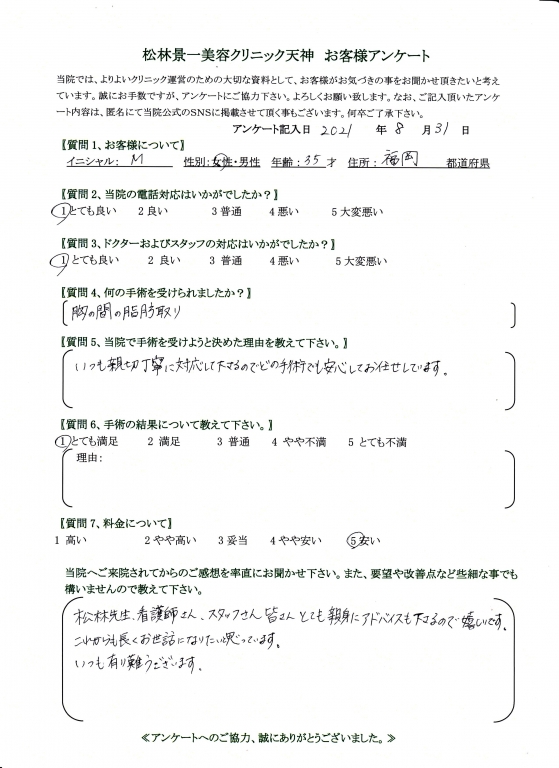 松林景一美容クリニック天神　お客様アンケート
当院では、よりよいクリニック運営のための大切な資料として、お客様がお気づきの事をお聞かせ頂きたいと考え
ています。誠にお手数ですが、アンケートにご協力下さい。よろしくお願い致します。なお、ご記入頂いたアンケ
ート内容は、匿名にて当院公式のSNSに掲載させて頂く事もございます。何卒ご了承下さい。
アンケート記入日 2021 年 8 月 31 日
【質問 1、お客様について】
イニシャル： M 性別:女性・男性 年齢：35才 住所： 福岡 都道府県
【質問 2、当院の電話対応はいかがでしたか？】
1とても良い 2 良い 3 普通 4 悪い 5 大変悪い
【質問 3、ドクターおよびスタッフの対応はいかがでしたか？】
1とても良い 2 良い 3 普通 4 悪い 5 大変悪い
【質問 4、何の手術を受けられましたか？】
胸の間の脂肪取り
【質問 5、当院で手術を受けようと決めた理由を教えて下さい。】
いつも親切丁寧に対応して下さるのでどの手術でも安心してお任せしています。
【質問 6、手術の結果について教えて下さい。】
1とても満足 2 満足 3 普通 4 やや不満 5 とても不満
理由：
【質問 7、料金について】
1 高い 2 やや高い 3 妥当 4 やや安い 5安い
当院へご来院されてからのご感想を率直にお聞かせ下さい。また、要望や改善点など些細な事でも
構いませんので教えて下さい。
松林先生、看護師さん、スタッフさん 皆さん とても親身にアドバイスも下さるので嬉しいです。
これからも長くお世話になりたい思っています。
いつも有り難うございます。
≪アンケートへのご協力、誠にありがとうございました。≫